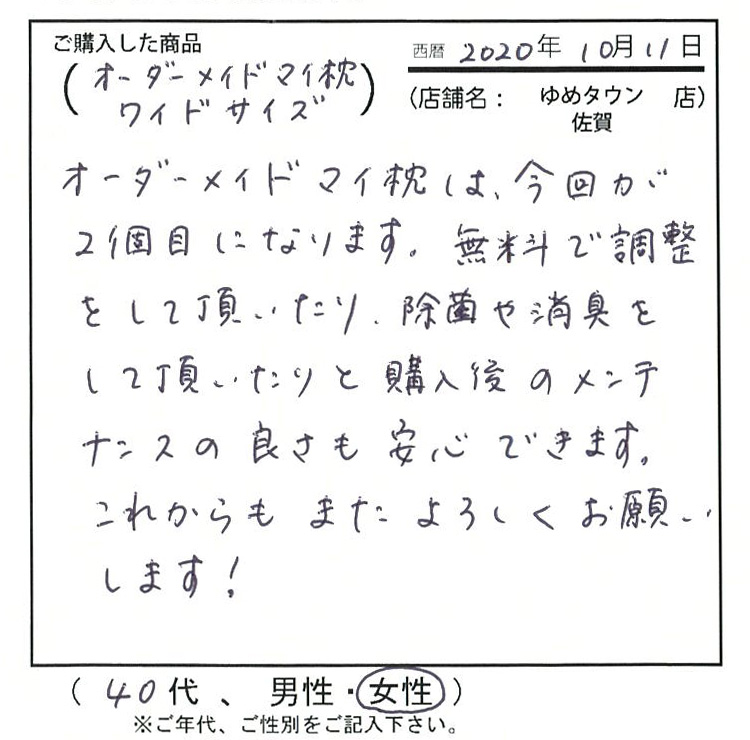 ご購入した商品
西暦 2020年 10月 11日
(オーダーメイドマイ枕
ワイドサイズ)
(店舗名： ゆめタウン 店)
佐賀
オーダーメイドマイ枕は、今回が
2個目になります。無料で調整
をして頂いたり、除菌や消臭を
して頂いたりと購入後のメンテ
ナンスの良さも安心できます。
これからもまたよろしくお願い
します！
( 40代 、 男性・女性 )
※ご年代、ご性別をご記入下さい。